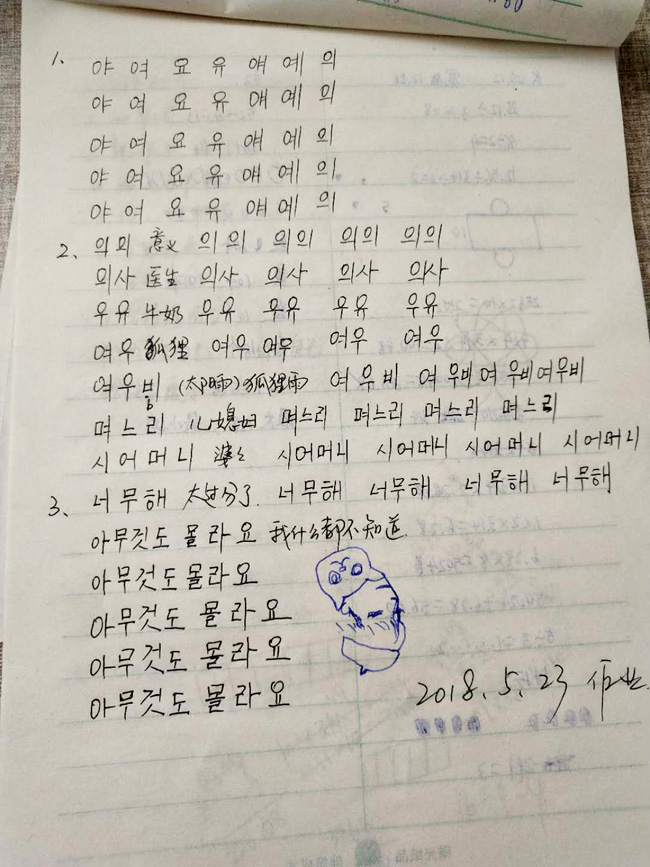 1. 야 여 요 유 얘 예 의
야 여 요 유 얘 예 의
야 여 요 유 얘 예 의
야 여 요 유 얘 예 의
야 여 요 유 얘 예 의
2、의의 意义 의의 의의 의의 의의
의사 医生 의사 의사 의사 의사
우유 牛奶 우유 우유 우유 우유
여우 狐狸 여우 여우 여우 여우
여우빙 (太阳雨) 狐狸雨 여우비 여우비 여우비 여우비
며느리 儿媳妇 며느리 며느리 며느리 며느리
시어머니 婆婆 시어머니 시어머니 시어머니 시어머니
3、너무해 太过分了. 너무해 너무해 너무해 너무해
아무것도 몰라요 我什么都不知道.
아무것도 몰라요
아무것도 몰라요
아무것도 몰라요
아무것도 몰라요
2018.5.23 作业.